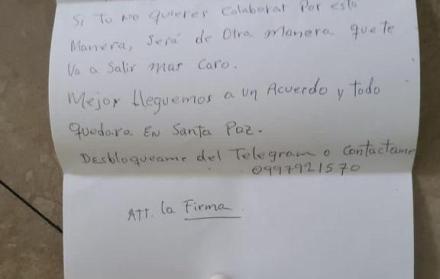 Si tu no quieres Colaborar Por esta
Manera, Será de Otra manera que te
Va a Salir mas Caro.
Mejor lleguemos a un Acuerdo y todo
quedara EN Santa Paz.
Desbloqueame del Telegram o Contactame
0997921570
ATT. la Firma